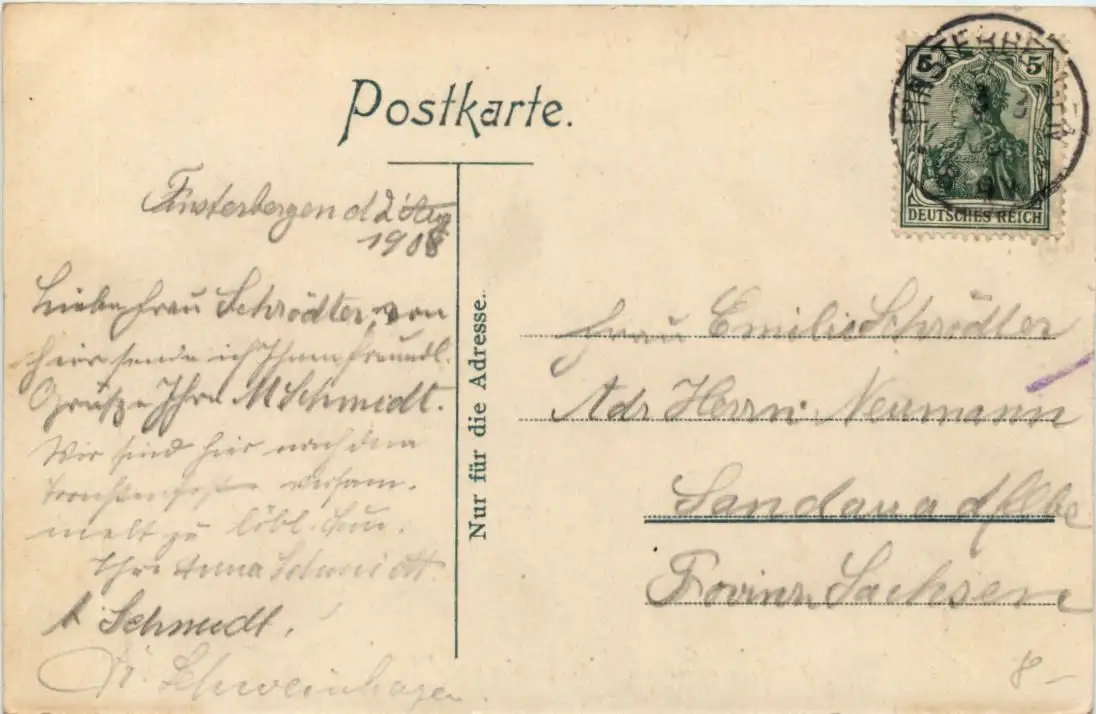 Postkarte.
5 5
FINSTERBERGEN
DEUTSCHES REICH
Finsterbergen d 2 Aug
1908
Liebe Frau Schrödter, von
hier sende ich Ihnen freundl.
Grüße Ihre M Schmidt.
Wir sind hier nach dem
versam.
melt zu löbl.
Ihre Anna Schmidt
A Schmidt.
Schweinhagen
Nur für die Adresse.
Frau Emilie Schrödter
Adr Herrn Neumann
Sandau a d Elbe
Provinz Sachsen
8 –